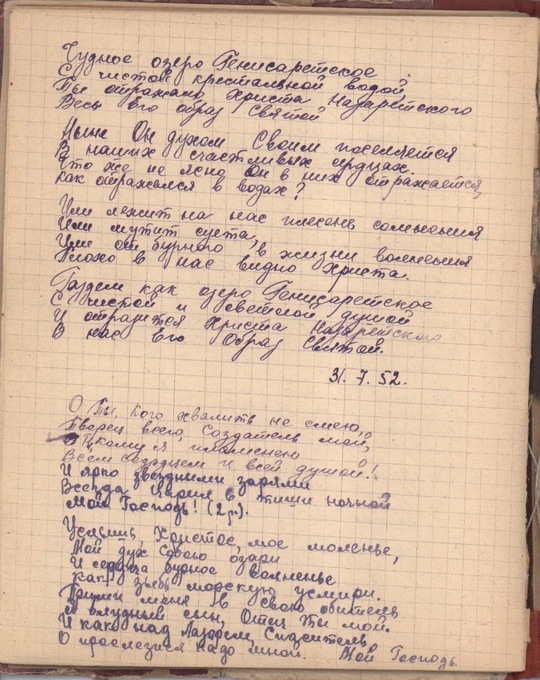 Чудное озеро Генисаретское
С чистой кристальной водой,
Ты отражало Христа Назаретского
Весь Его образ святой
Ныне Он духом Своим поселяется
В наших счастливых сердцах.
Что же не ясно Он в них отражается,
Как отражался в водах?
Или лежит на нас плесень сомненья
Или мутит суета,
Или от бурного в жизни волненья
Плохо в нас видно Христа.
Будем как озеро Генисаретское
С чистой и светлой душой
И отразится Христа Назаретского
В нас Его образ святой.
31.7.52.
О Ты, кого хвалить не смею,
Творец всего, Создатель мой,
К кому я пламенею
Всем сердцем и всей душой!
И ярко звездными зарями
Всегда царил в тиши ночной
Мой Господь! (2 р.).
Услышь, Христос, мое моленье,
Мой дух Тобою озари
И сердца бурное волненье
Как зыбь морскую усмири.
Прими меня в свою обитель
Я блудный сын, Отец Ты мой.
И как над Лазарем, Спаситель,
О прослезися надо мной. Мой Господь.